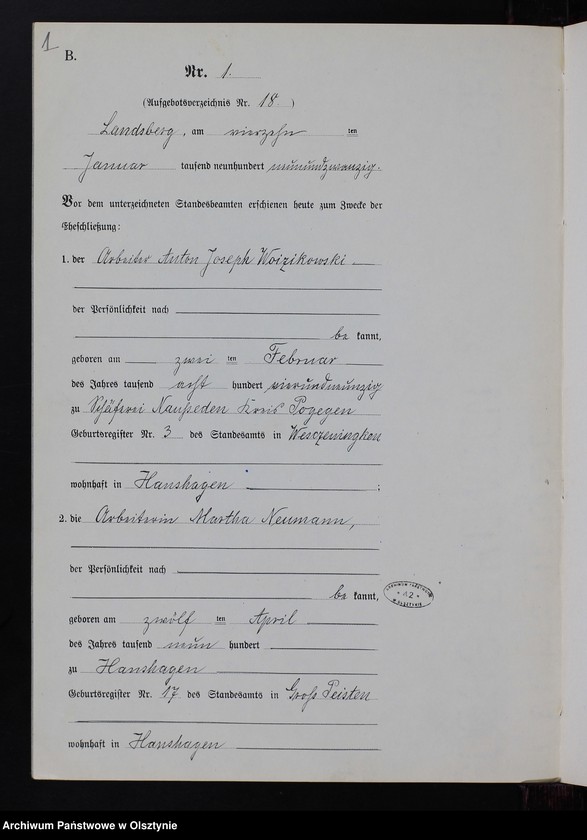 1
B.
Nr. 1.
(Aufgebotsverzeichnis Nr. 18)
Landsberg, am vierzehn ten
Januar tausend neunhundert neunundzwanzig.
Vor dem unterzeichneten Standesbeamten erschienen heute zum Zwecke der
Eheschließung:
1. der Arbeiter Anton Joseph Woizikowski
der Persönlichkeit nach
be kannt,
geboren am zwei ten Februar
des Jahres tausend acht hundert vierundneunzig
zu Schäferei Naußeden Kreis Pogegen
Geburtsregister Nr. 3 des Standesamts in
wohnhaft in Hanshagen ;
2. die Arbeiterin Martha Neumann,
der Persönlichkeit nach
be kannt,
geboren am zwölf ten April
des Jahres tausend neun hundert
zu Hanshagen
Geburtsregister Nr. 17 des Standesamts in Groß Peisten
wohnhaft in Hanshagen
ARCHIWUM PAŃSTWOWE
* 42 *
W OLSZTYNIE
Archiwum Państwowe w Olsztynie